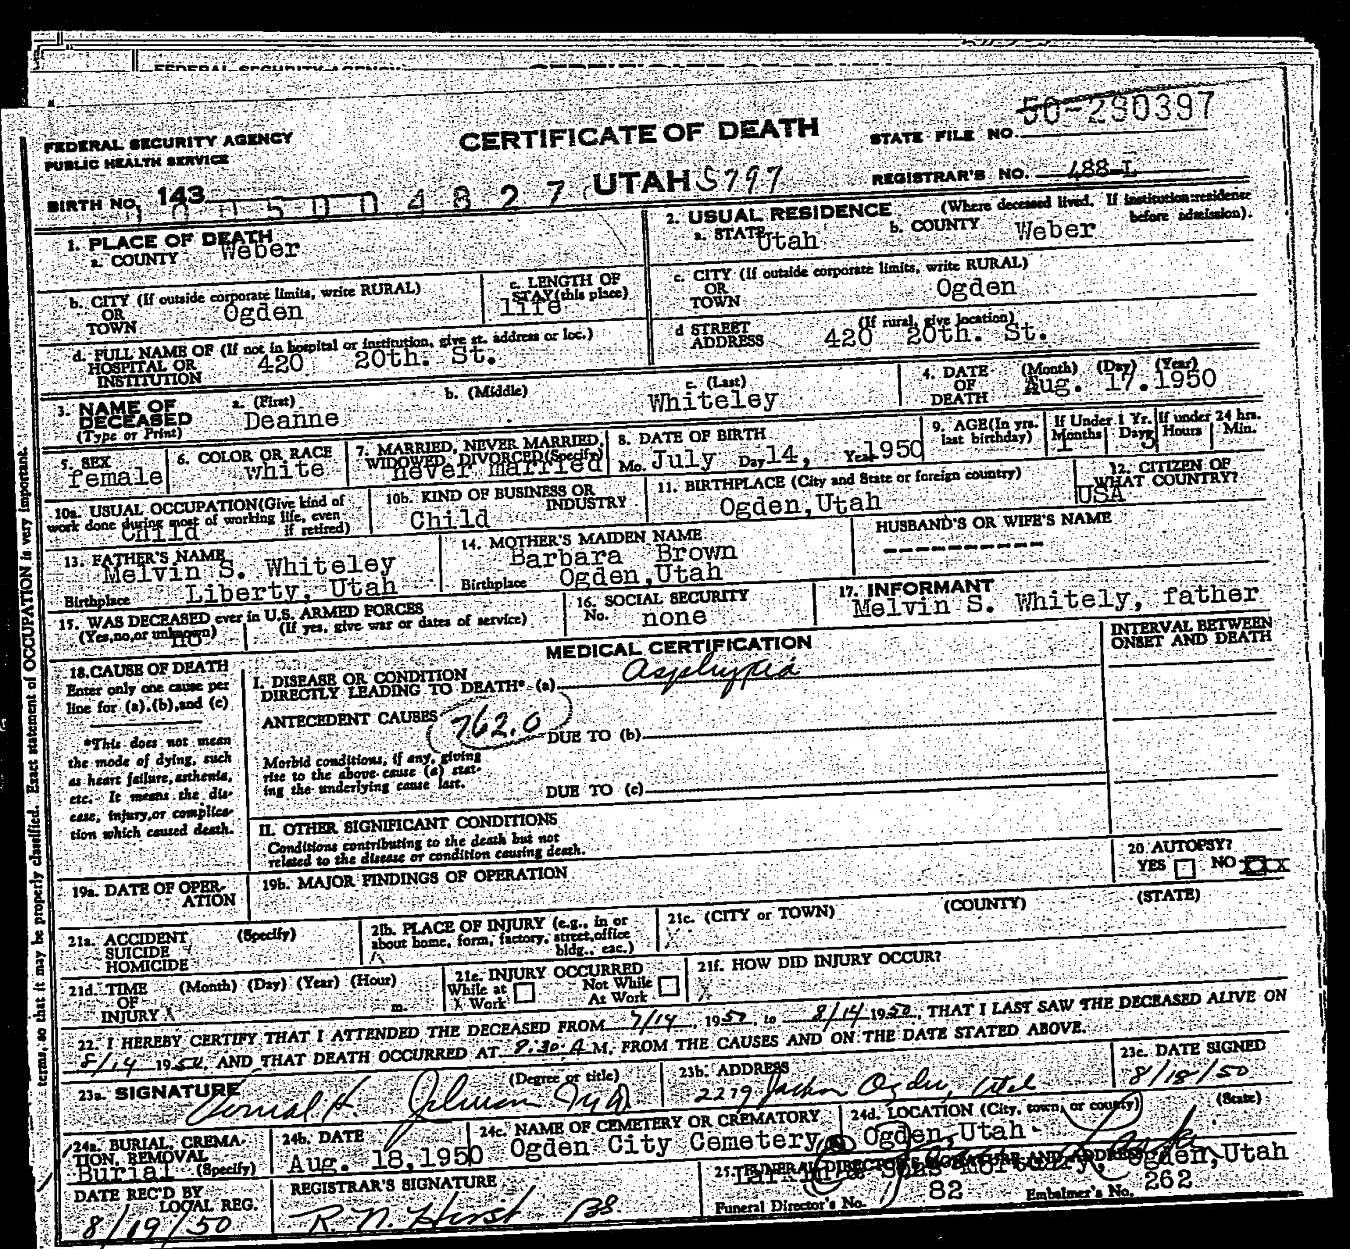 FEDERAL SECURITY AGENCY
PUBLIC HEALTH SERVICE
CERTIFICATE OF DEATH
STATE FILE NO. 50-290397
BIRTH NO. 143
UTAH S797
REGISTRAR'S NO. 488-L
1. PLACE OF DEATH
a. COUNTY Weber
2. USUAL RESIDENCE (Where deceased lived. If institution:residence before admission).
a. STATE Utah
b. COUNTY Weber
b. CITY (If outside corporate limits, write RURAL)
OR TOWN Ogden
c. LENGTH OF STAY (this place) life
c. CITY (If outside corporate limits, write RURAL)
OR TOWN Ogden
d. FULL NAME OF (If not in hospital or institution, give st. address or loc.)
HOSPITAL OR INSTITUTION 420 20th. St.
d STREET ADDRESS (If rural, give location)
420 20th. St.
3. NAME OF DECEASED (Type or Print)
a. (First) Deanne
b. (Middle)
c. (Last) Whiteley
4. DATE OF DEATH (Month) (Day) (Year)
Aug. 17. 1950
5. SEX female
6. COLOR OR RACE white
7. MARRIED, NEVER MARRIED, WIDOWED, DIVORCED (Specify) never married
8. DATE OF BIRTH
Mo. July Day 14, Year 1950
9. AGE (In yrs. last birthday)
If Under 1 Yr. Months 1 Days 3
If under 24 hrs. Hours Min.
10a. USUAL OCCUPATION (Give kind of work done during most of working life, even if retired) Child
10b. KIND OF BUSINESS OR INDUSTRY Child
11. BIRTHPLACE (City and State or foreign country)
Ogden, Utah
12. CITIZEN OF WHAT COUNTRY? USA
13. FATHER'S NAME
Melvin S. Whiteley
Birthplace Liberty, Utah
14. MOTHER'S MAIDEN NAME
Barbara Brown
Birthplace Ogden, Utah
HUSBAND'S OR WIFE'S NAME
----------
15. WAS DECEASED ever in U.S. ARMED FORCES
(Yes,no,or unknown) no (If yes, give war or dates of service)
16. SOCIAL SECURITY No. none
17. INFORMANT
Melvin S. Whitely, father
MEDICAL CERTIFICATION
INTERVAL BETWEEN ONSET AND DEATH
18. CAUSE OF DEATH
Enter only one cause per line for (a),(b),and (c)
*This does not mean the mode of dying, such as heart failure, asthenia, etc. It means the disease, injury, or complication which caused death.
I. DISEASE OR CONDITION
DIRECTLY LEADING TO DEATH* (a) Asphyxia
ANTECEDENT CAUSES 762.0
DUE TO (b)
Morbid conditions, if any, giving rise to the above cause (a) stating the underlying cause last.
DUE TO (c)
II. OTHER SIGNIFICANT CONDITIONS
Conditions contributing to the death but not related to the disease or condition causing death.
19a. DATE OF OPERATION
19b. MAJOR FINDINGS OF OPERATION
20. AUTOPSY?
YES NO X
21a. ACCIDENT SUICIDE HOMICIDE (Specify)
21b. PLACE OF INJURY (e.g., in or about home, form, factory, street, office bldg., eac.)
21c. (CITY or TOWN) (COUNTY) (STATE)
21d. TIME OF INJURY (Month) (Day) (Year) (Hour) m.
21e. INJURY OCCURRED
While at Work Not While At Work
21f. HOW DID INJURY OCCUR?
22. I HEREBY CERTIFY THAT I ATTENDED THE DECEASED FROM 7/14, 1950, to 8/14 1950, THAT I LAST SAW THE DECEASED ALIVE ON
8/14 1950, AND THAT DEATH OCCURRED AT 9:30 A M, FROM THE CAUSES AND ON THE DATE STATED ABOVE.
23a. SIGNATURE (Degree or title)
Vernal H. Johnson M.D.
23b. ADDRESS
2279 Jackson Ogden, Utah
23c. DATE SIGNED
8/18/50
24a. BURIAL, CREMATION, REMOVAL (Specify)
Burial
24b. DATE
Aug. 18,1950
24c. NAME OF CEMETERY OR CREMATORY
Ogden City Cemetery
24d. LOCATION (City, town, or county) (State)
Ogden, Utah
DATE REC'D BY LOCAL REG.
8/19/50
REGISTRAR'S SIGNATURE
25. FUNERAL DIRECTOR'S SIGNATURE AND ADDRESS
Larkin & Sons Mortuary, Ogden, Utah
Funeral Director's No. 82 Embalmer's No. 262
terms, so that it may be properly classified. Exact statement of OCCUPATION is very important.